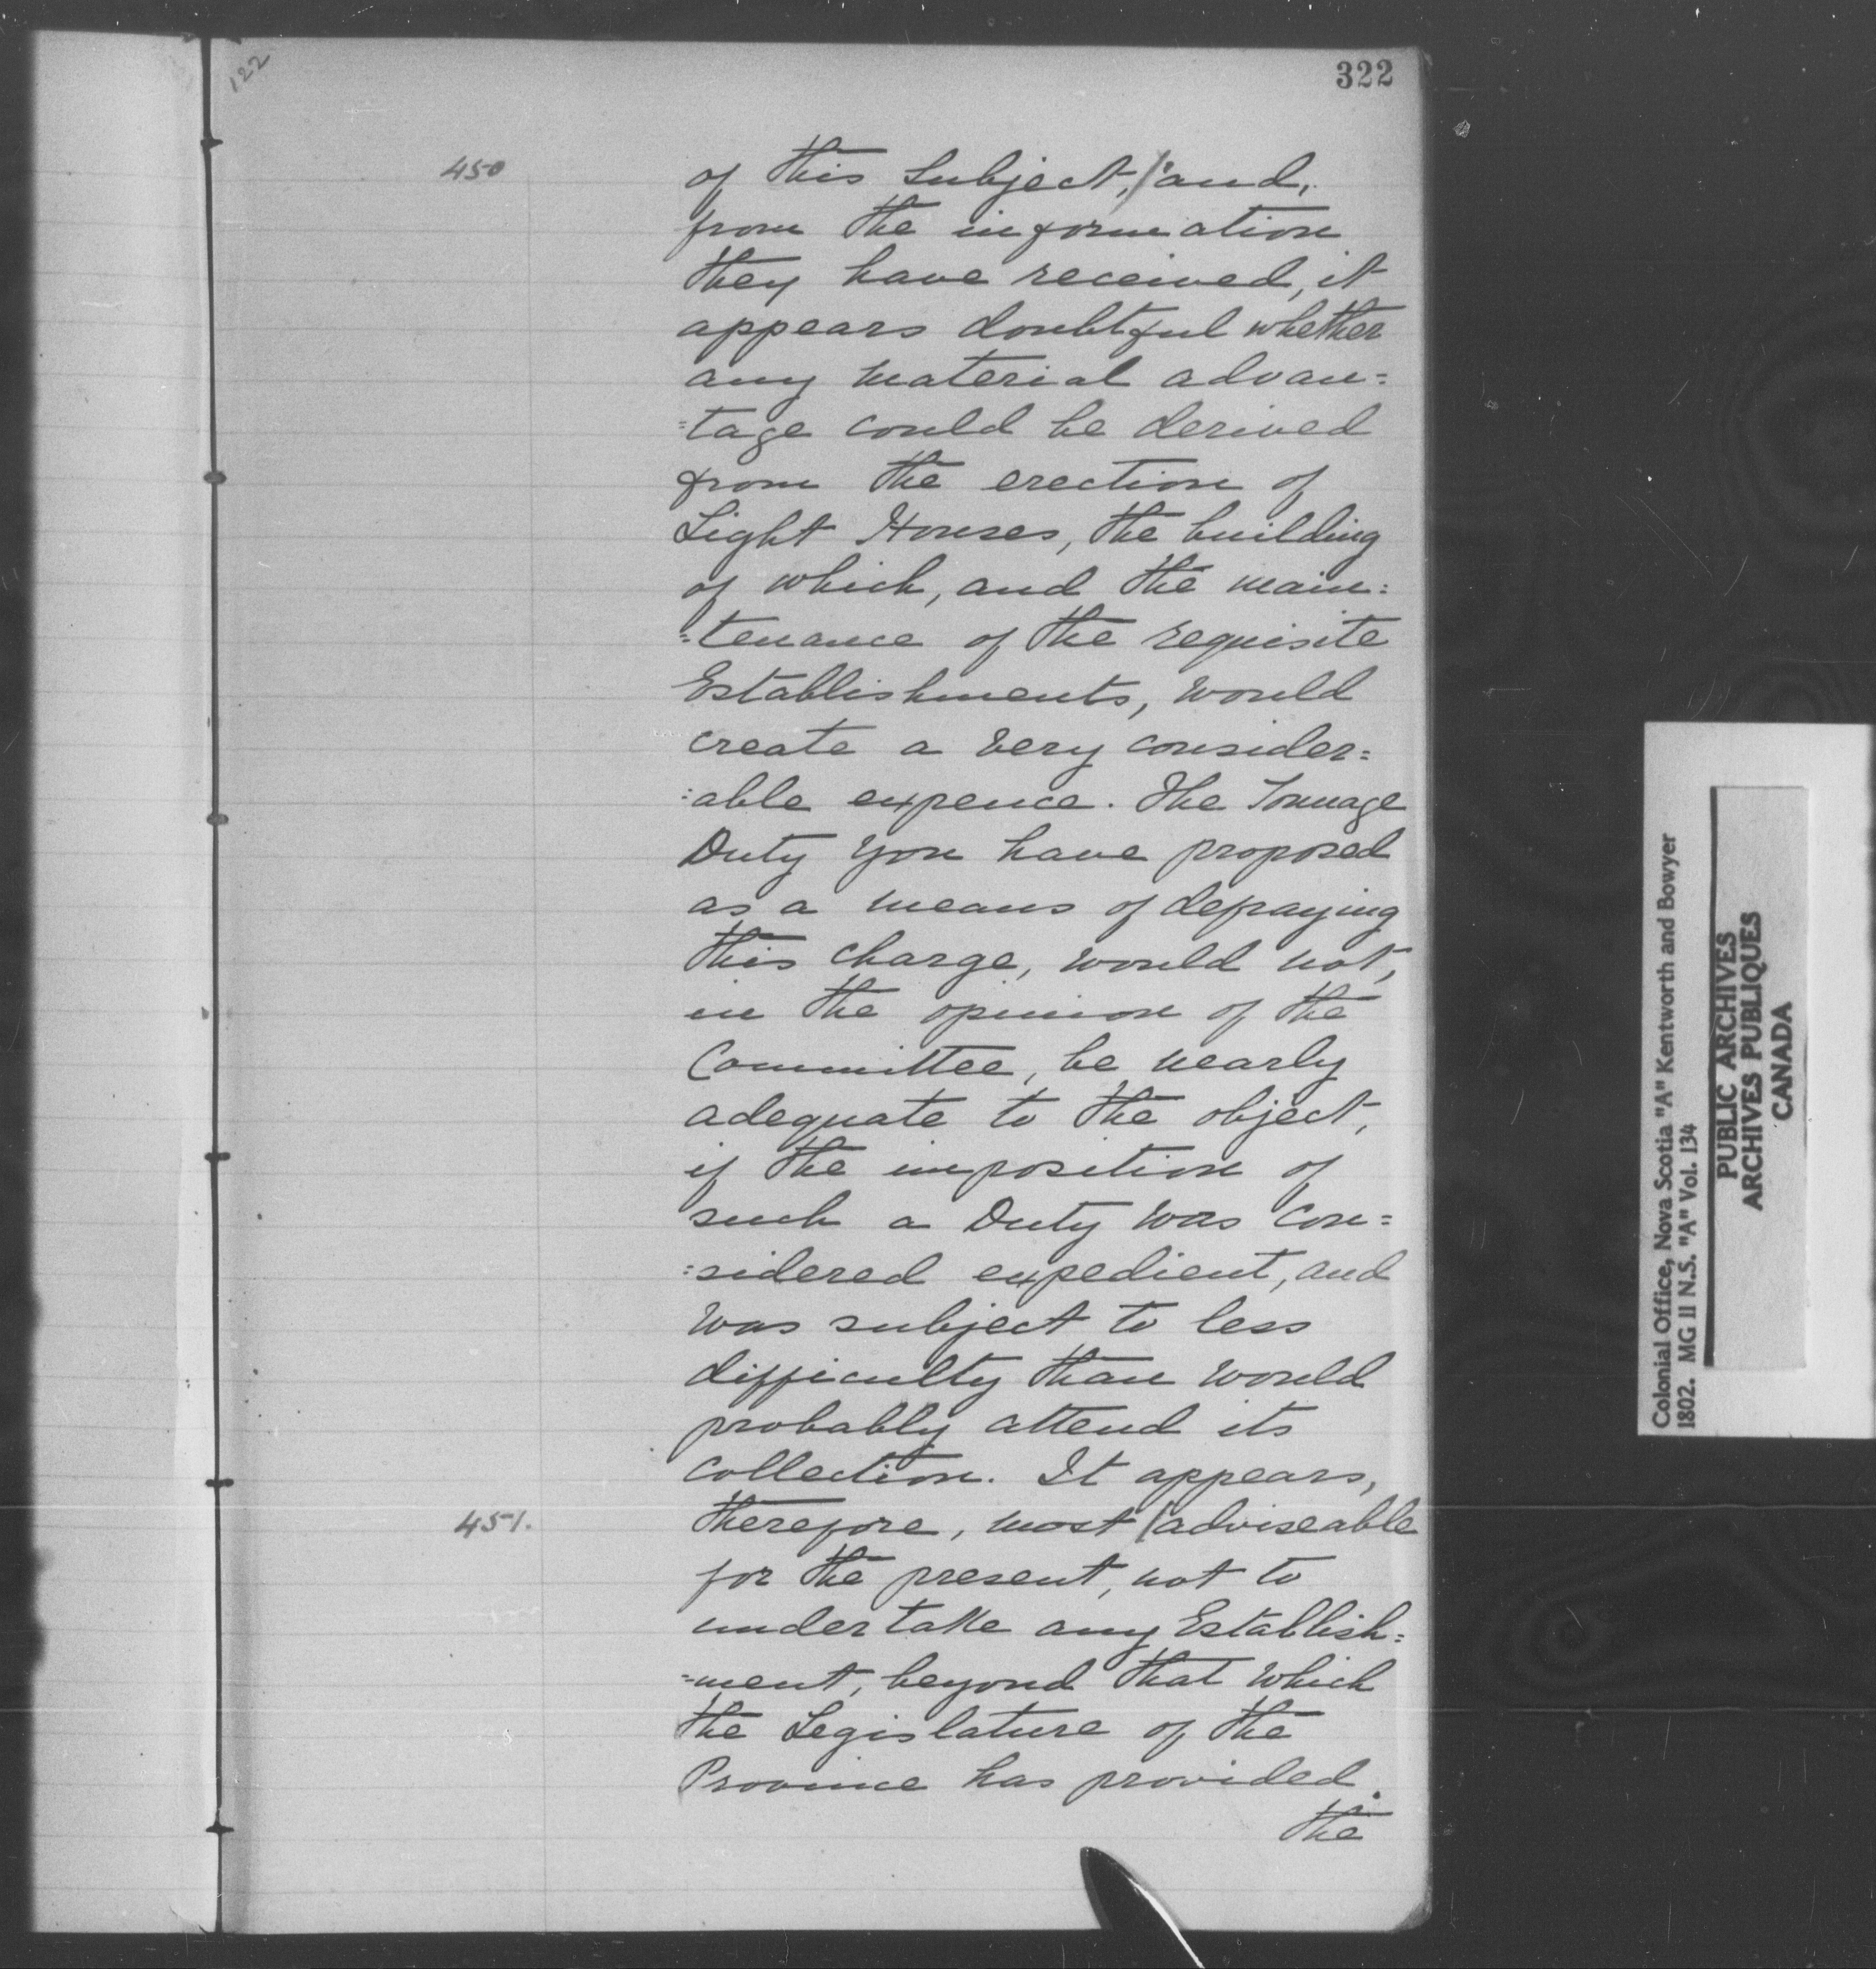 122
322
450
of this Subject, / and,
from the information
they have received, it
appears doubtful whether
any material advan=
=tage could be derived
from the erection of
Light Houses, the building
of which, and the main=
=tenance of the requisite
Establishments, would
create a very consider=
=able expence. The Tonnage
Duty you have proposed
as a means of defraying
this charge, would not,
in the opinion of the
Committee, be nearly
adequate to the object,
if the imposition of
such a Duty was con=
=sidered expedient, and
was subject to less
difficulty than would
probably attend its
collection. It appears,
451.
therefore, most / adviseable
for the present, not to
undertake any Establish=
=ment, beyond that which
the Legislature of the
Province has provided.
The
Colonial Office, Nova Scotia "A" Kentworth and Bowyer
1802. MG II N.S. "A" Vol. 134
PUBLIC ARCHIVES
ARCHIVES PUBLIQUES
CANADA